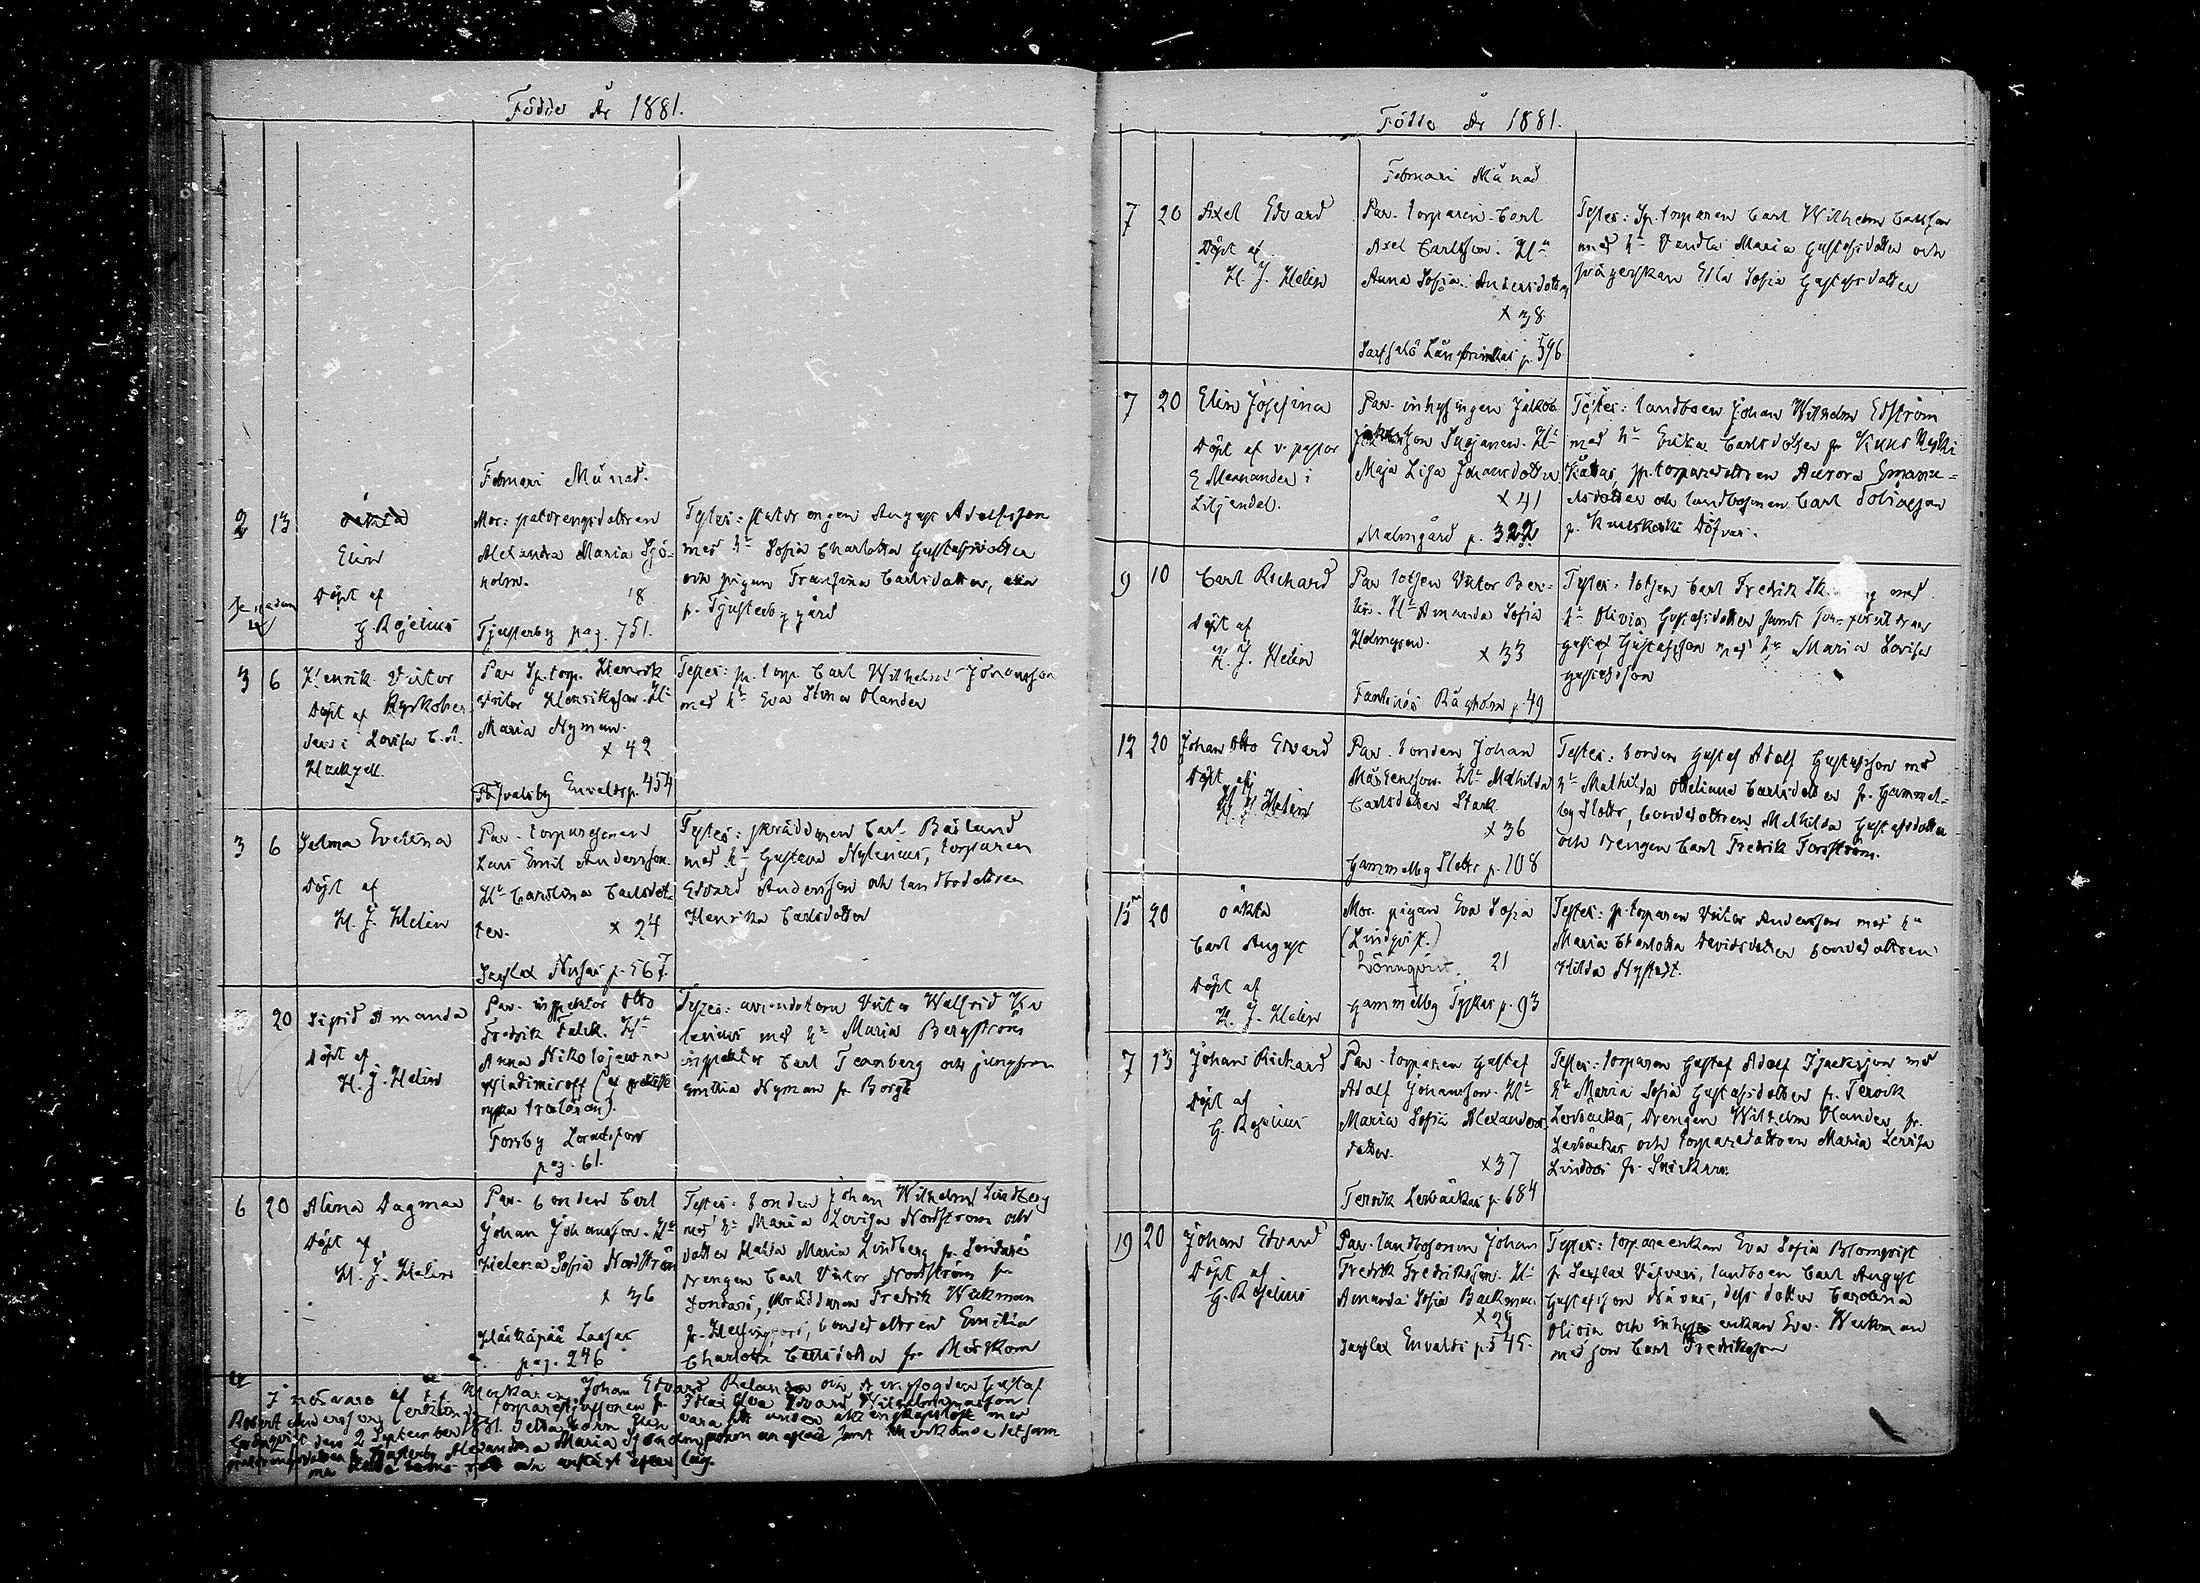 Födde År 1881.
Februari Månad.
2 13 oäkta
Elin
Döpt af
G. Roselius
Mor: statdrengsdottren
Alexandra Maria Sjö-
holm.
18
Tjusterby pag. 751.
Testes: statdrengen August Adolfsson
med h:u Sofia Charlotta Gustafsdotter
och pigan Fransina Carlsdotter, alla
fr. Tjusterby gård
3 6 Henrik Victor
Döpt af Kyrkoher-
den i Lovisa C. A.
Par Sp.torp. Henrik
Victor Henriksson. H:u
Maria Nyman.
x 42
Envalds p. 454
Testes: sp. torp. Carl Wilhelm Johansson
med h:u Eva Stina Olander
3 6 Selma Evelina
Döpt af
H. J. Helin
Par. torparesonen
Lars Emil Andersson.
H:u Carolina Carlsdot-
ter. x 24
Sarflax Nissas p. 567.
Testes: skräddaren Carl Båslund
med h:u Gustava Nylenius, torparen
Edvard Andersson och landbodottren
Henrika Carlsdotter
20 Sigrid Amanda
Döpt af
H. J. Helin
Par. inspektor Otto
Fredrik Falck. H:u
Anna Nikolajewna
Wladimiroff (af grekisk
ryska trosläran).
Forsby
pag. 61.
Testes: arrendatorn Victor Walfrid
med h:u Maria Bergström
inspektor Carl Tcamberg och jungfrun
Emilia Nyman fr Borgå
6 20 Alina Dagmar
Döpt af
H. J. Helin
Par. bonden Carl
Johan Johansson. H:u
Helena Sofia Nordström
x 36
Härkäpää Lassas
pag. 246
Testes: bonden Johan Wilhelm Lindberg
med h:u Maria Lovisa Nordström och
dotter Hulda Maria Lindberg fr.
drengen Carl Victor Nordström fr
skräddaren Fredrik Wickman
fr. Helsingfors, bondedottren Emilia
Charlotta Carlsdotter fr Mörskom
I närvaro af Johan Edvard och Gustaf
Robert Andersson torparesonen fr. Edvard Wilhelm
den 2 September 1881
Alexandra Maria Sjöholm samt
och enligt lag.
Födde År 1881.
Februari Månad
7 20 Axel Edvard
Döpt af
H. J. Helin
Par. torparen Carl
Axel Carlsson. H:u
Anna Sofia Andersdotter
x 38.
Sarfsalö p. 596
Testes: Sp. torparen Carl Wilhelm Carlsson
med h:u Vendla Maria Gustafsdotter och
svägerskan Ella Sofia Gustafsdotter
7 20 Elin Josefina
Döpt af v. pastor
E Mennander i
Liljendal.
Par. inhysingen Jakob
Jakobsson H:u
Maja Lisa Johansdotter
x 41
Malmgård p. 322
Testes: landboen Johan Wilhelm Edström
med h:u Erika Carlsdotter fr Kuuskoski
sp.torparedottren Aurora Emanu-
elsdotter och landbosonen Carl Tobiasson
fr. Kuuskoski Döfvas.
9 10 Carl Richard
Döpt af
H. J. Helin
Par lotsen Victor Ber-
lin. H:u Amanda Sofia
Holmgren.
x 33
p. 49
Testes: lotsen Carl Fredrik med
h:u Olivia Gustafsdotter samt
Gustaf Gustafsson med h:u Maria Lovisa
Gustafsson
12 20 Johan Otto Edvard
Döpt af
H. J. Helin
Par. bonden Johan
Mårtensson. H:u Mathilda
Carlsdotter Stark
x 36
Gammelby Slotts p. 108
Testes: bonden Gustaf Adolf Gustafsson med
h:u Mathilda Ottiliana Carlsdotter fr. Gammel-
by Slotts, bondedottren Mathilda Gustafsdotter
och drengen Carl Fredrik Forsström.
15 20 oäkta
Carl August
Döpt af
H. J. Helin
Mor. pigan Eva Sofia
(Lindqvist.)
Lönnqvist. 21
Gammelby Tyskas p. 93
Testes: sp. torparen Victor Andersson med h:u
Maria Charlotta Davidsdotter bondedottren
Hilda Nystedt.
7 13 Johan Richard
Döpt af
G. Roselius
Par. torparen Gustaf
Adolf Johansson. H:u
Maria Sofia Alexanders-
dotter.
x 37
Tervik Lerbäckas p. 684
Testes: torparen Gustaf Adolf Isacksson med
h:u Maria Sofia Gustafsdotter fr. Tervik
Lerbäckas, drengen Wilhelm Olander fr.
Lerbäckas och torparedottren Maria Lovisa
Lindroos fr.
19 20 Johan Edvard
Döpt af
G. Roselius
Par. landbosonen Johan
Fredrik Fredriksson. H:u
Amanda Sofia Backman.
x 29
Sarflax Envalds p. 545.
Testes: torpareenkan Eva Sofia Blomqvist
fr Sarflax landboen Carl August
Gustafsson dess dotter Carolina
Olivia och inhyses enkan Eva Weckman
med son Carl Fredriksson